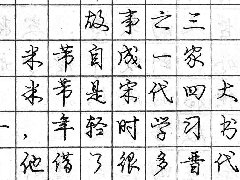 故事之三
米芾自成一家
米芾是宋代四大
一，年轻时学习书
他借了很多晋代